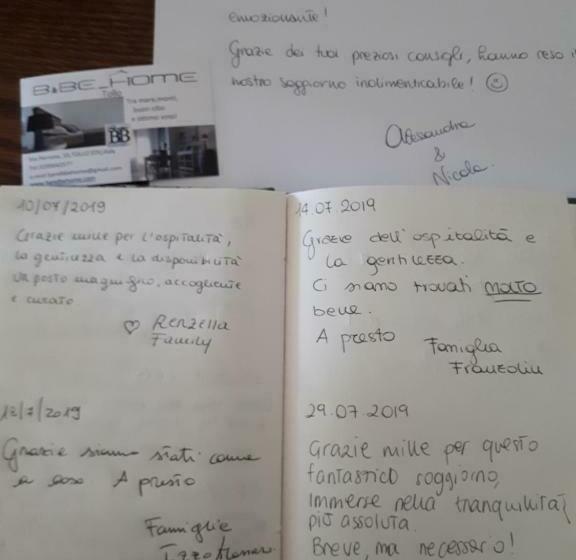 emozionante!
Grazie dei tuoi preziosi consigli, hanno reso il
nostro soggiorno indimenticabile! ☺
Alessandra
&
Nicola
B&BE_HOME
Tollo
Tra mare,monti,
buon cibo
e ottimo vino!
BB
10/07/2019
Grazie mille per l'ospitalità,
la gentilezza e la disponibilità
Un posto magnifico, accogliente
e curato
♡ Renzella
Family
12/7/2019
Grazie siamo stati come
a casa A presto
Famiglie
14.07.2019
Grazie dell'ospitalità e
la gentilezza.
Ci siamo trovati molto
bene.
A presto
Famiglia
29.07.2019
Grazie mille per questo
fantastico soggiorno,
Immerse nella tranquillità
più assoluta.
Breve, ma necessario!